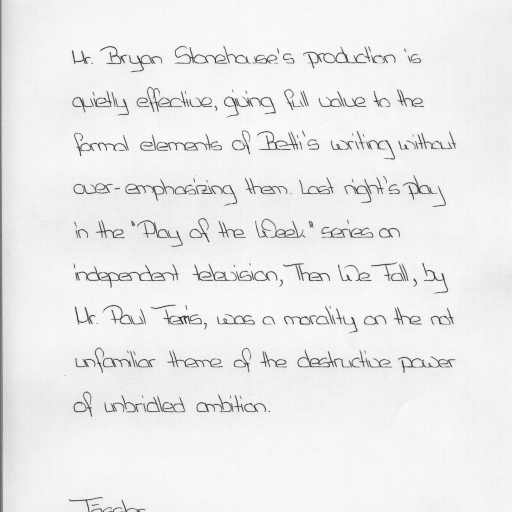 Mr. Bryan Stonehouse's production is
quietly effective, giving full value to the
formal elements of Betti's writing without
over-emphasizing them. Last night's play
in the "Play of the Week" series on
independent television, Then We Fall, by
Mr. Paul Ferris, was a morality on the not
unfamiliar theme of the destructive power
of unbridled ambition.